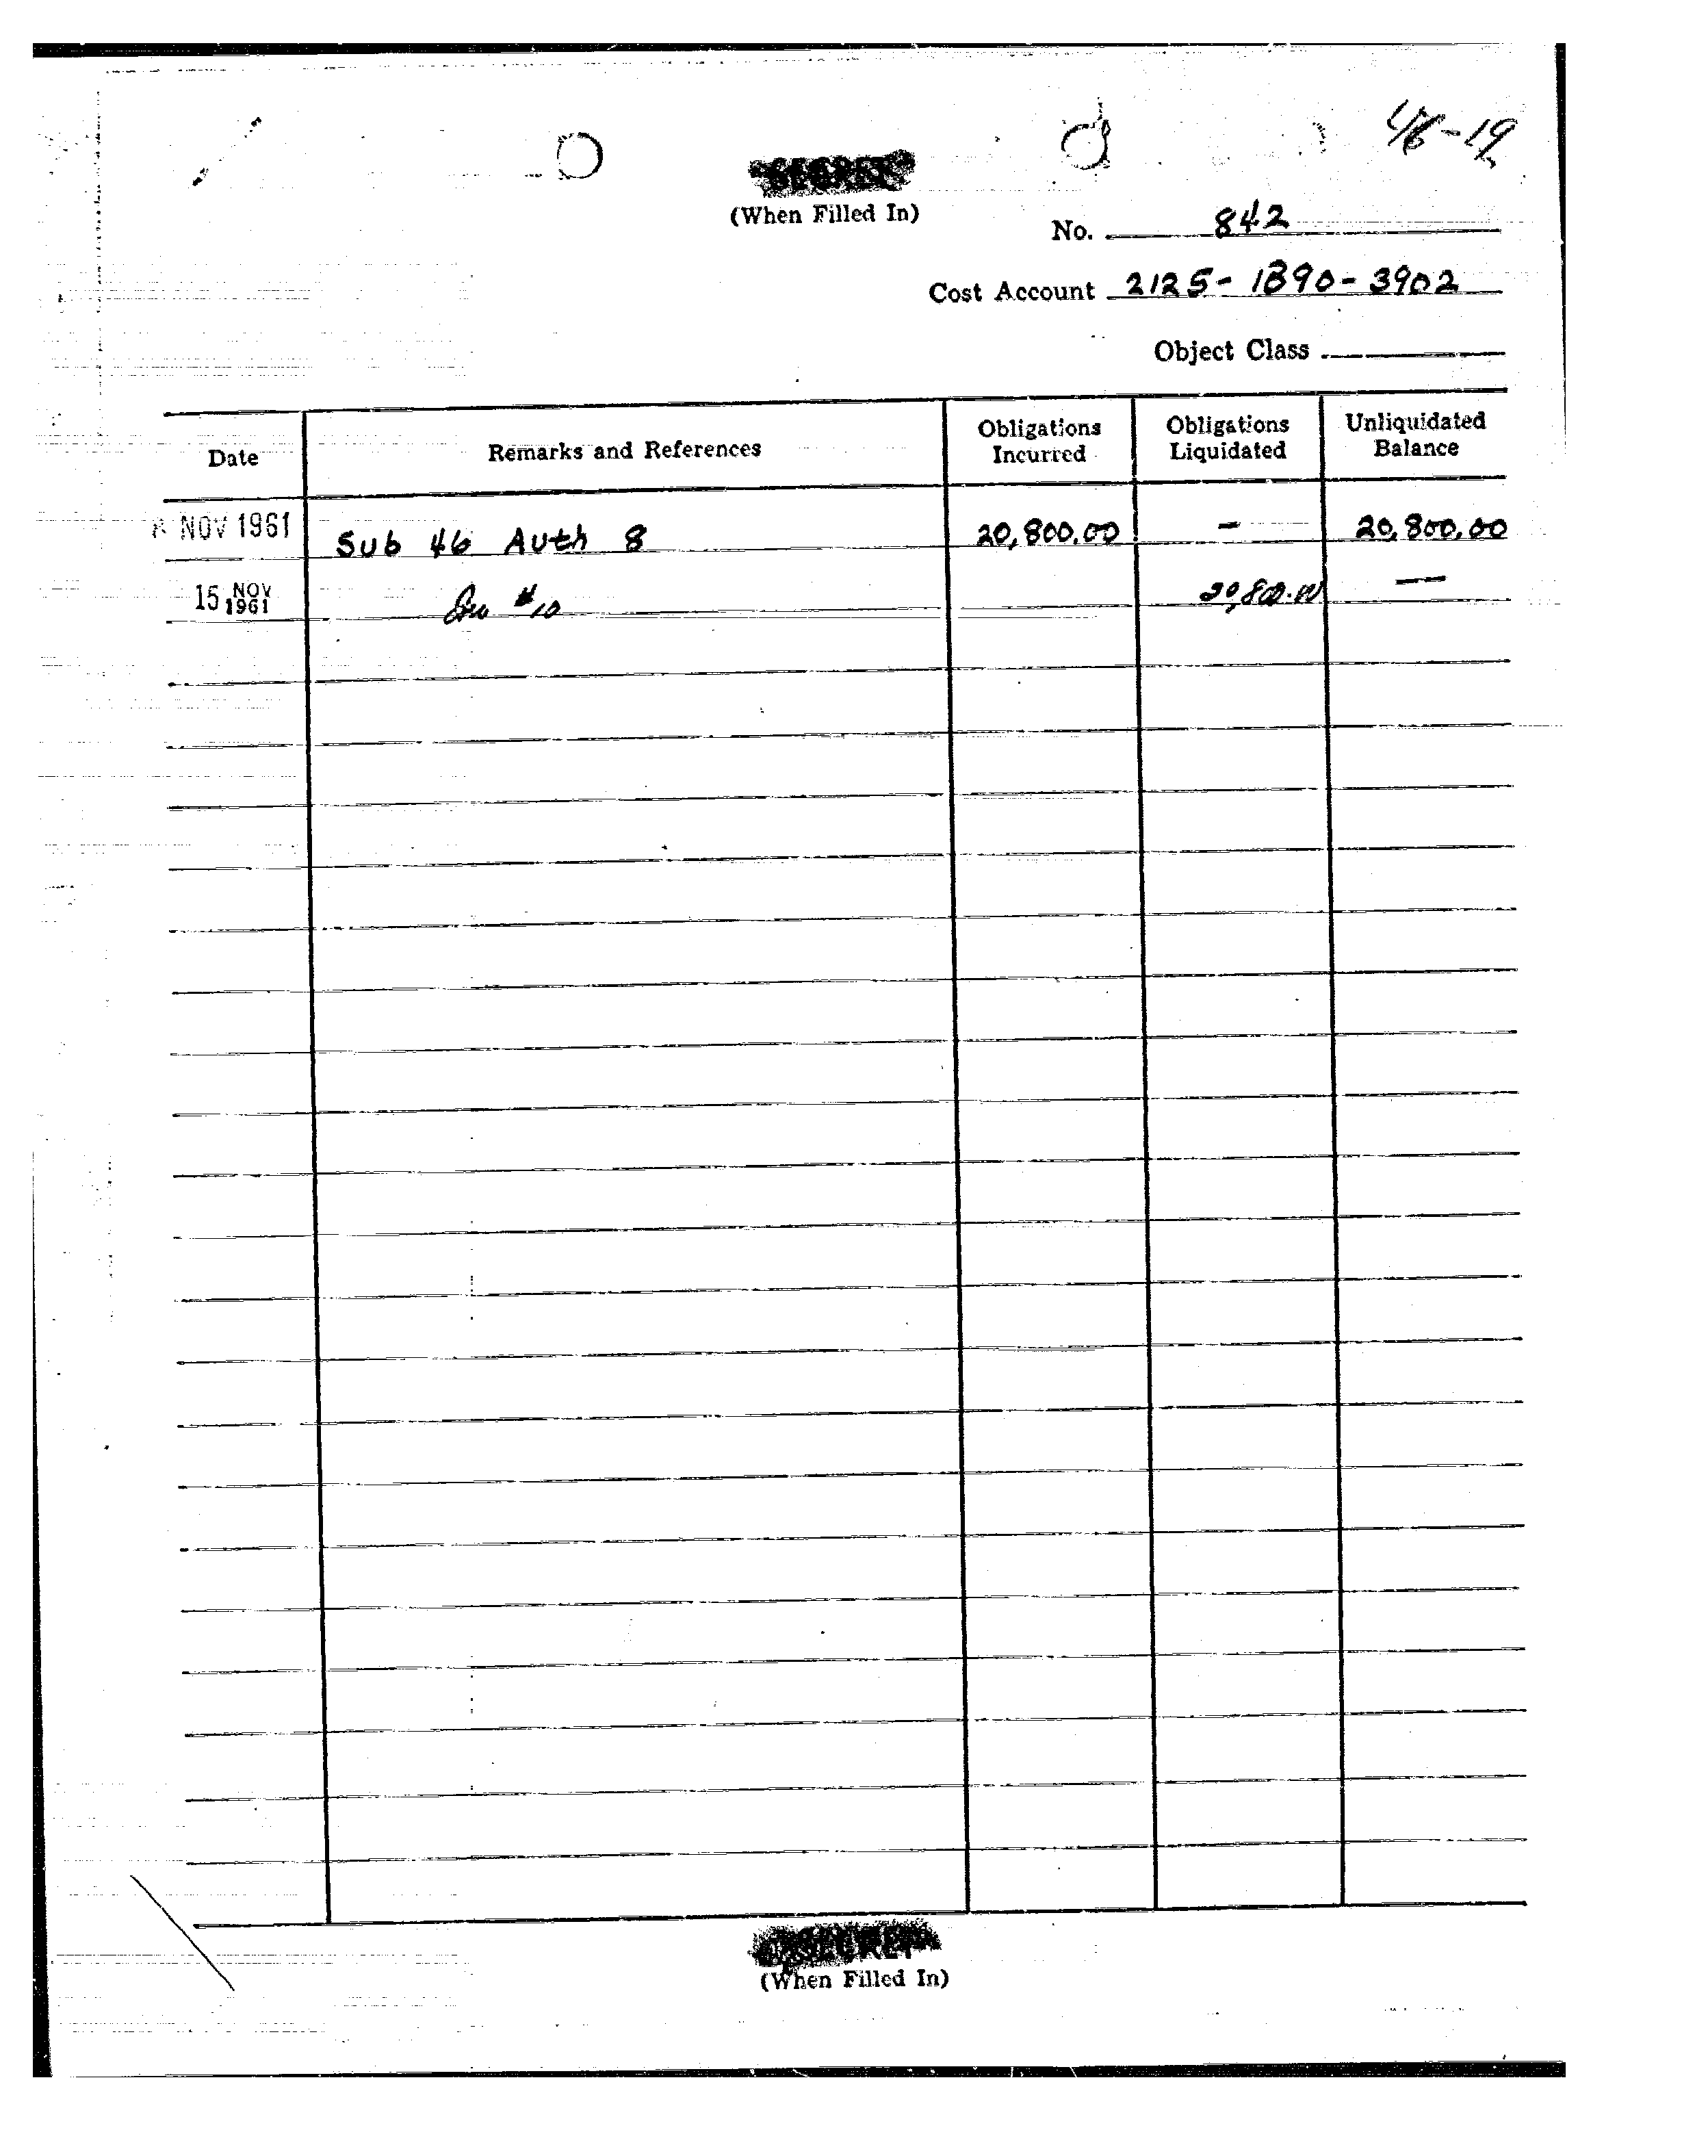 46-19
SECRET
(When Filled In)
No. 842
Cost Account 2125-1390-3902
Object Class
Date Remarks and References Obligations Incurred Obligations Liquidated Unliquidated Balance
NOV 1961 Sub 46 Auth 8 20,800.00 - 20,800.00
15 NOV 1961 #10 20,800.00 —
SECRET
(When Filled In)